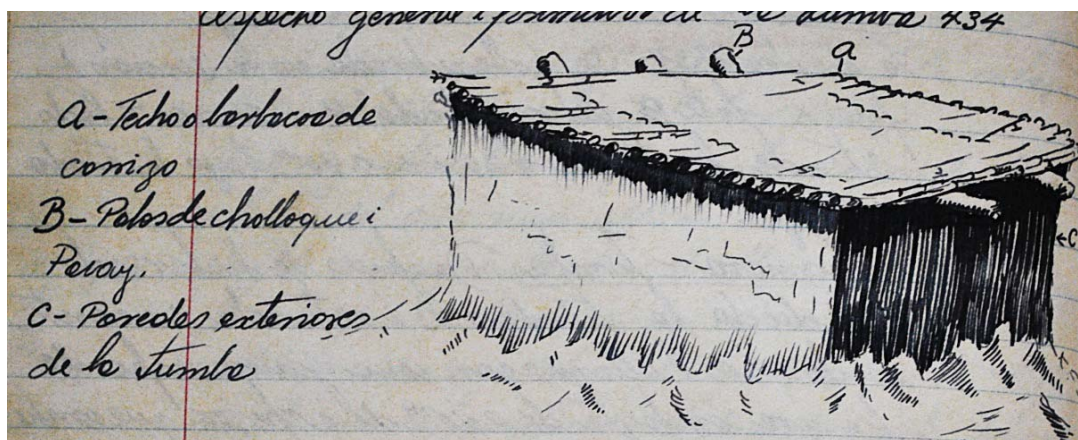 aspecto general i de la tumba 434
B
A
A-Techo o barbacoa de
carrizo
B-Palos de cholloque i
Pacay.
C
C-Paredes exteriores
de la tumba